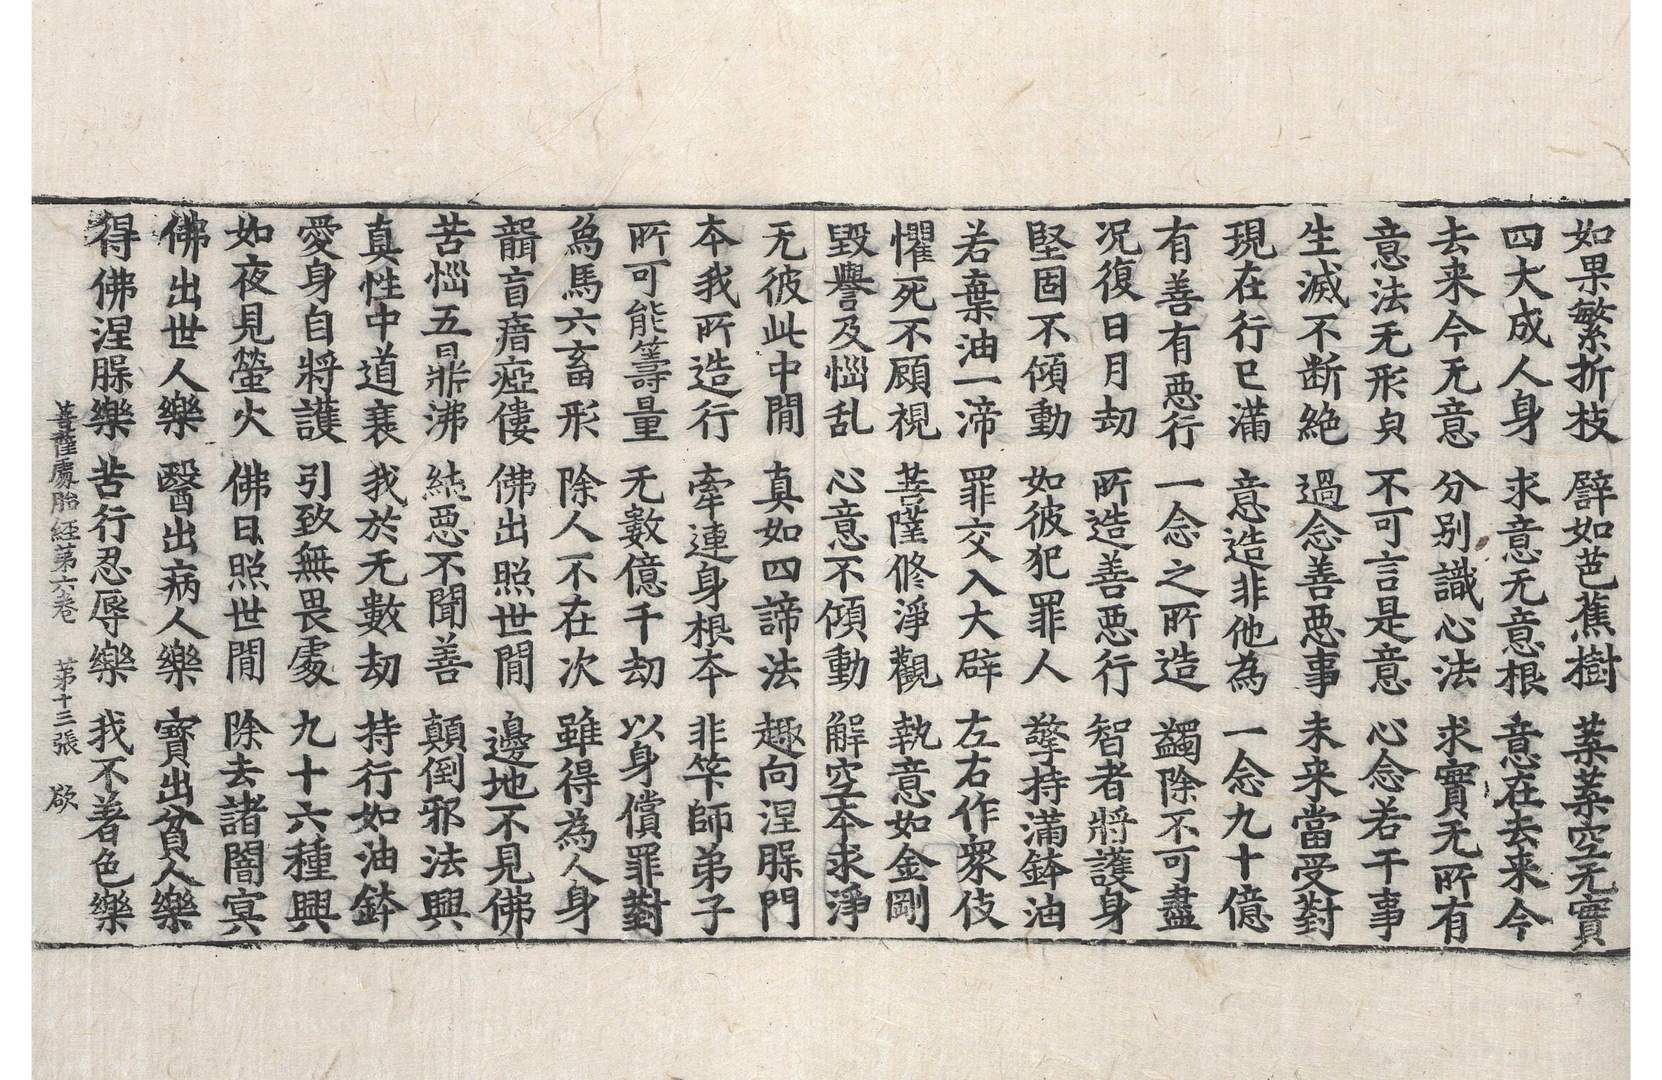 如果繁折枝 譬如芭蕉樹 葉葉空无實
四大成人身 求意无意根 意在去来今
去来今无意 分别識心法 求實无所有
意法无形皃 不可言是意 心念若干事
生滅不断絶 過念善悪事 未来當受對
現在行已滿 意造非他為 一念九十億
有善有悪行 一念之所造 蠲除不可盡
况復日月劫 所造善悪行 智者將護身
堅固不傾動 如彼犯罪人 擎持滿鉢油
若棄油一渧 罪交入大辟 左右作衆伎
懼死不顧視 菩薩修淨觀 執意如金剛
毀譽及惱乱 心意不傾動 解空本求淨
无彼此中閒 真如四諦法 趣向涅槃門
本我所造行 牽連身根本 非笇師弟子
所可能籌量 无數億千劫 以身償罪對
為馬六畜形 除人不在次 雖得為人身
聾盲瘖瘂僂 佛出照世閒 邊地不見佛
苦惱五鼎沸 結悪不聞善 顛倒邪法興
真性中道衰 我於无數劫 持行如油鉢
愛身自將護 引致無畏處 九十六種興
如夜見螢火 佛日照世閒 除去諸闇冥
佛出世人樂 醫出病人樂 寶出貧人樂
得佛涅槃樂 苦行忍辱樂 我不著色樂
菩薩處胎經第六卷 第十三張 欲